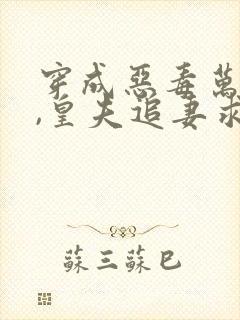 穿成惡毒萬
,皇夫追妻求
蘇三蘇巳